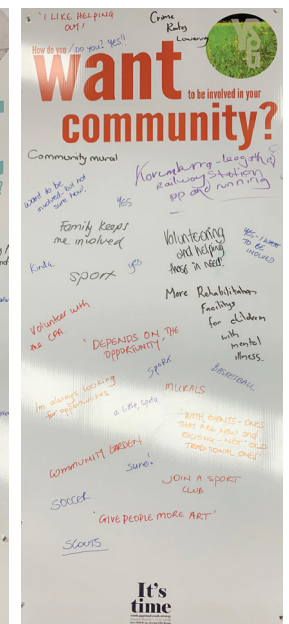 'I LIKE HELPING
OUT!
Crime
Rates
Lowering
YSPG
How do you / Do you? Yes!!
want
to be involved in your
community?
Community mural
Korumburra - Leogatha
Railway Station
up and running
want to be
involved but not
sure how!
YES
Family keeps
me involved
Volunteering
and helping
those in need.
YES - I WANT
TO BE
INVOLVED
Kinda
yes
sport
More Rehabilitation
Facilitys
for children
with
mental
illness.
Volunteer with
the CFA.
'DEPENDS ON THE
OPPORTUNITY'
SPORT
BASKETBALL
I'm always looking
for opportunities
MURALS
a little, sports
WITH EVENTS - ONES
THAT ARE NEW AND
EXCITING - NOT OLD
TRADITIONAL ONES
COMMUNITY GARDEN
sure!
JOIN A SPORT
CLUB
SOCCER
'GIVE PEOPLE MORE ART'
SCOUTS
It's
time